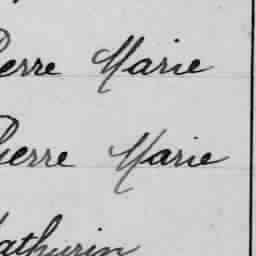 Pierre Marie
Pierre Marie
Mathurin